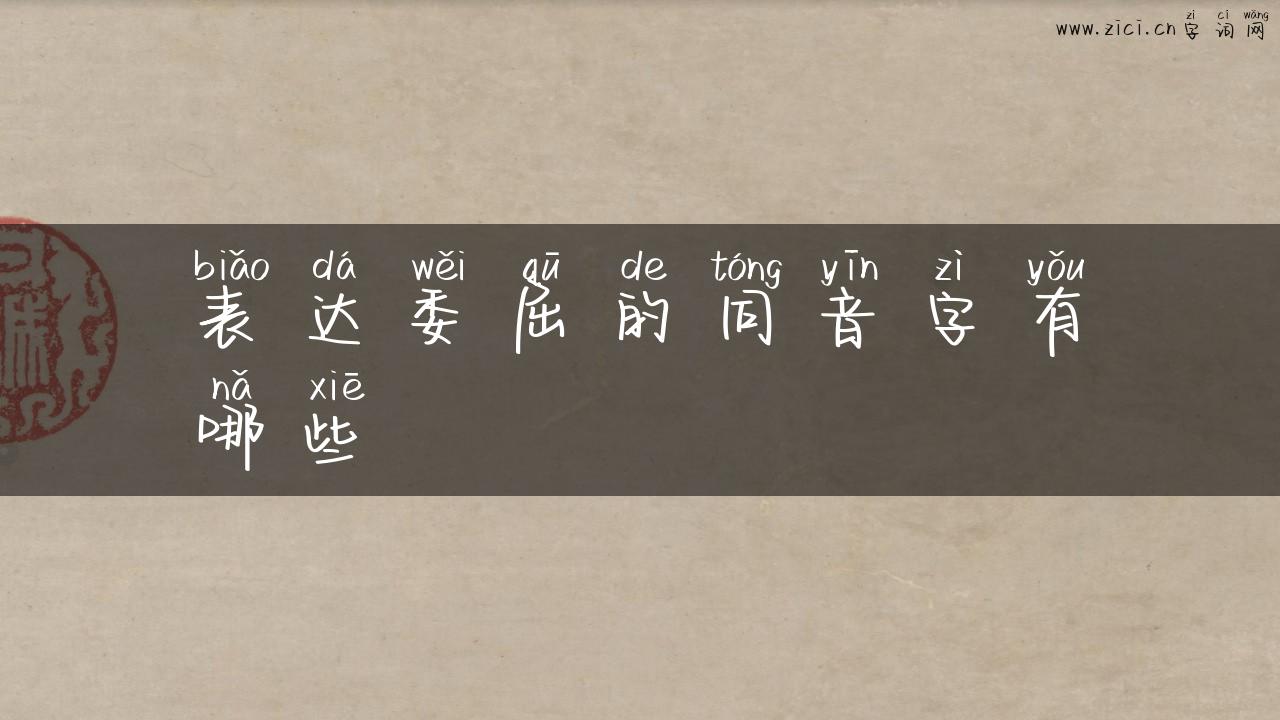 zì cí wǎng
www.zici.cn 字词网
biǎo dá wěi qū de tóng yīn zì yǒu
表达委屈的同音字有
nǎ xiē
哪些